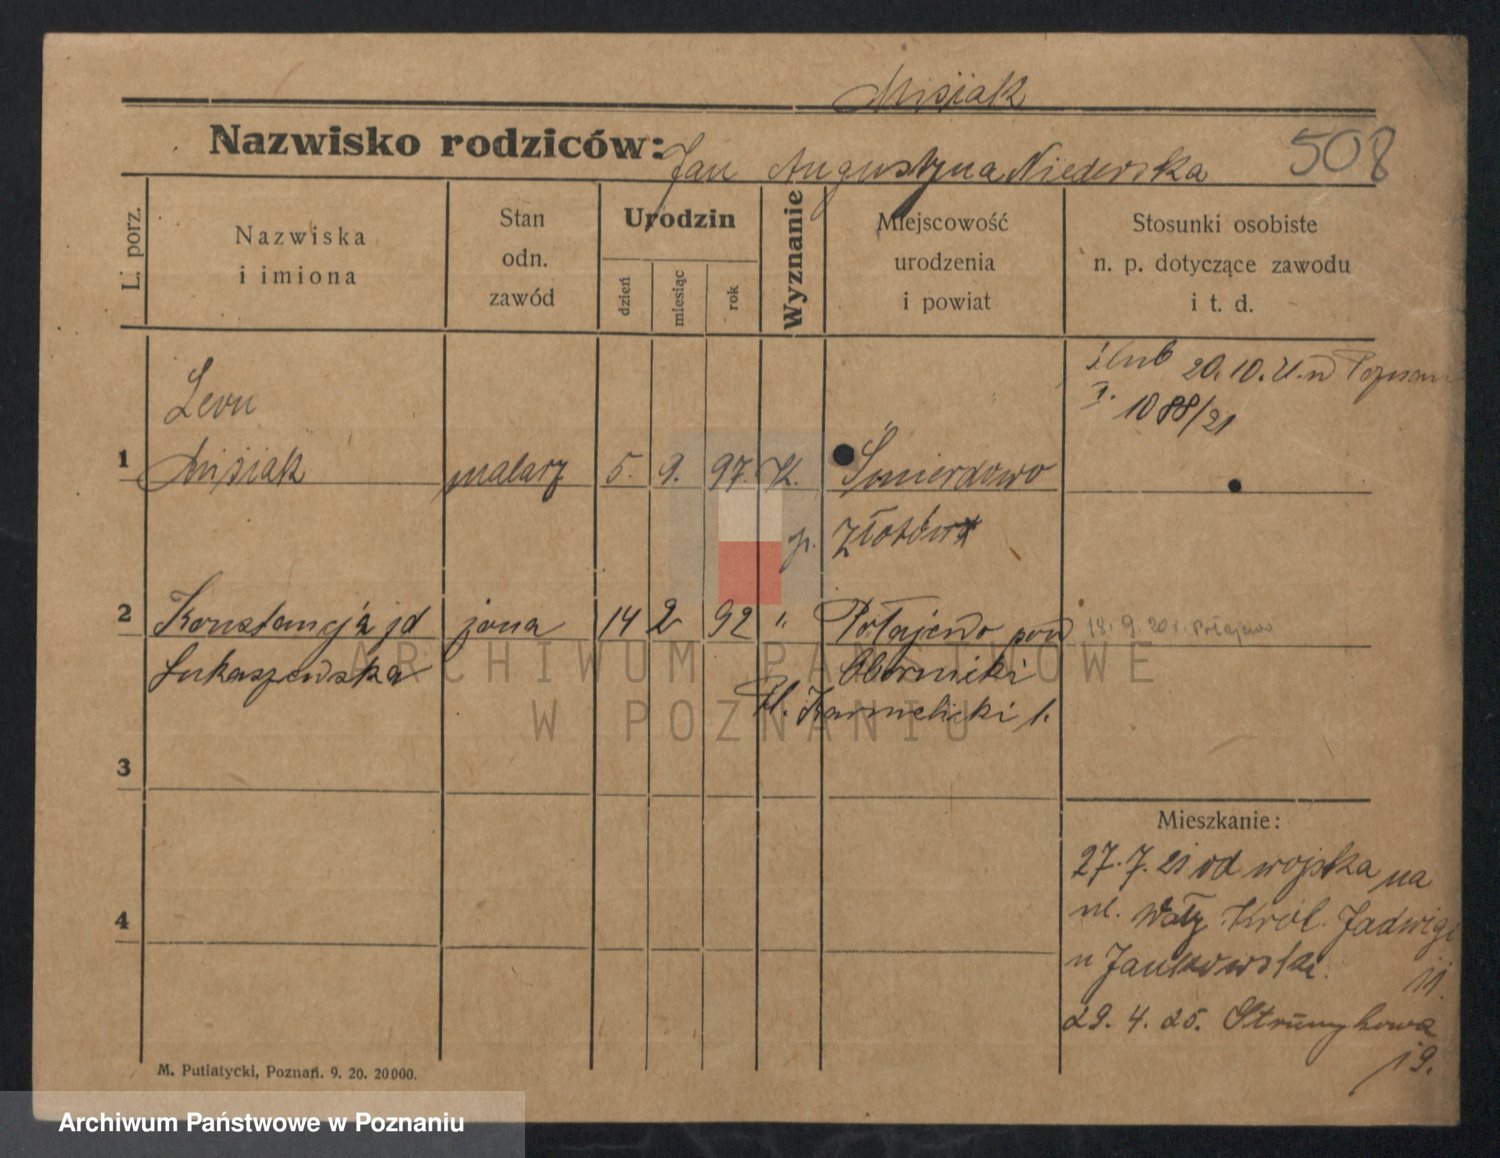 Misiak
Nazwisko rodziców: Jan Augustyna Niederska
508
L. porz.
Nazwiska
i imiona
Stan
odn.
zawód
Urodzin
dzień
miesiąc
rok
Wyznanie
Miejscowość
urodzenia
i powiat
Stosunki osobiste
n. p. dotyczące zawodu
i t. d.
ślub 20.10.21 w Poznan
1088/21
Leon
1 Misiak malarz 5. 9. 97. K. Śmierdowo
p. Złotów
2 Konstancja jd żona 14 2 92 " Połajewo pow
18. 9. 20 r. Połajewo
Łukaszewska Oborniki
Pl. Karmelicki 1.
3
Mieszkanie:
27.7.21 od wojska na
ul. Wały Król. Jadwigi
u Jankowski. 11.
4
29. 4. 25. Strumykowa
19.
M. Putiatycki, Poznań. 9. 20. 20000.
ARCHIWUM PAŃSTWOWE
W POZNANIU
Archiwum Państwowe w Poznaniu